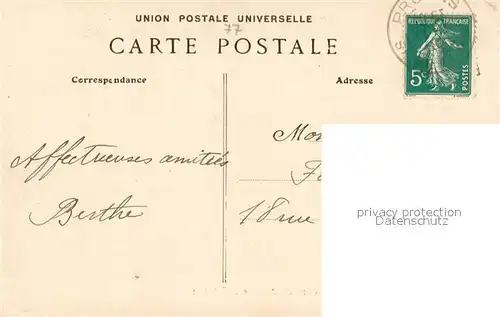 UNION POSTALE UNIVERSELLE
77
CARTE POSTALE
Correspondance
Adresse
RÉPUBLIQUE FRANÇAISE
5c POSTES
Affectueuses amitiés
Berthe
18 rue
privacy protection
description